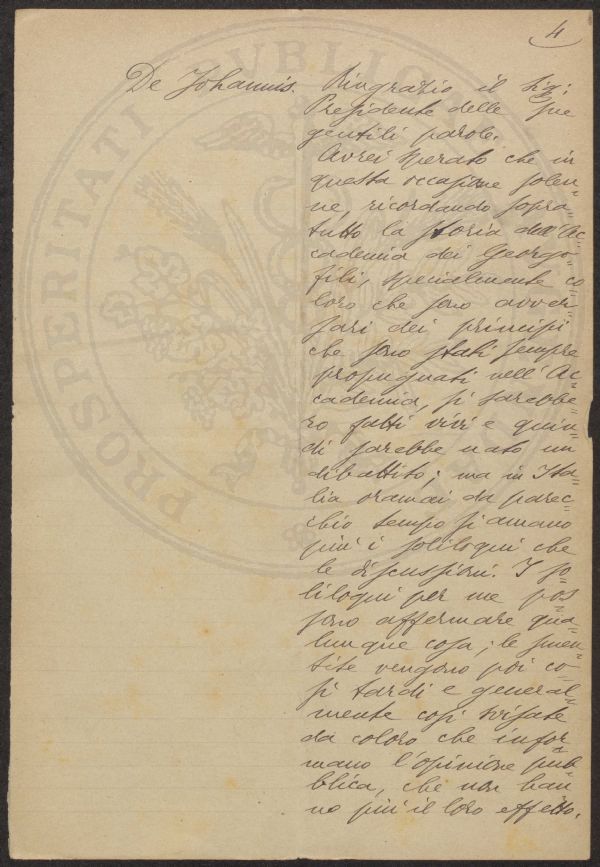 4
De Johannis. Ringrazio il Sig:
Presidente delle Sue
gentili parole.
Avrei sperato che in
questa occasione solen=
ne, ricordando sopra=
tutto la storia dell'Ac=
cademia dei Georgo=
fili, specialmente co=
loro che sono avver=
sari dei principi
che sono stati sempre
propugnati nell'Ac=
cademia, si sarebbe=
ro fatti vivi e quin=
di sarebbe nato un
dibattito; ma in Ita=
lia oramai da parec=
chio tempo si amano
più i soliloqui che
le discussioni. I so=
liloqui per me pos=
sono affermare qua=
lunque cosa; le smen=
tite vengono poi co=
sì tardi e general=
mente così svisate
da coloro che infor=
mano l'opinione pub=
blica, che non han=
no più il loro effetto.
PROSPERITATI
PVBLICAE